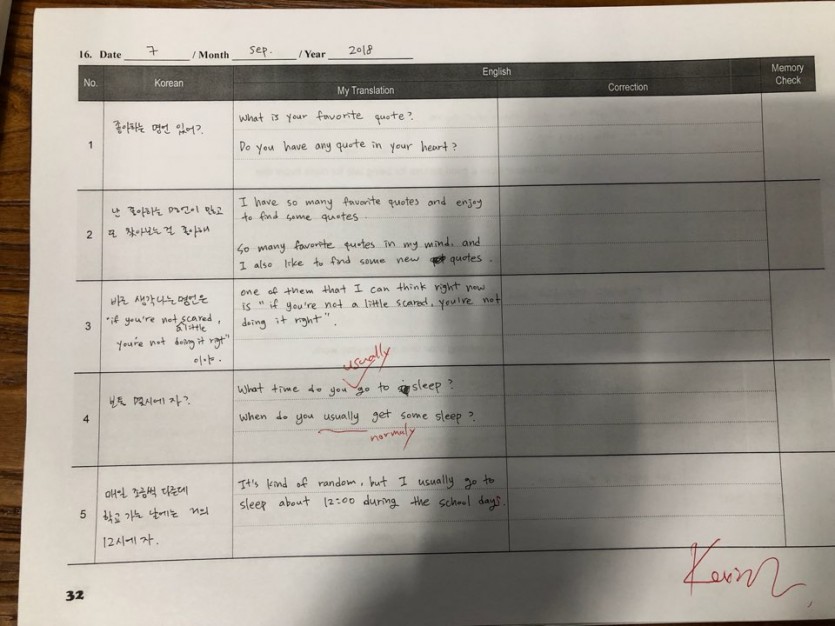 16. Date 7 / Month Sep. / Year 2018
No. Korean English Memory Check
My Translation Correction
1
좋아하는 명언 있어?
What is your favorite quote?
Do you have any quote in your heart?
2
난 좋아하는 명언이 많고
또 찾아보는걸 좋아해
I have so many favorite quotes and enjoy
to find some quotes
So many favorite quotes in my mind. and
I also like to find some new quotes.
3
바로 생각나는 명언은
"if you're not scared,
a little
you're not doing it right"
이야.
one of them that I can think right now
is "if you're not a little scared, you're not
doing it right".
4
보통 몇시에 자?
usually
What time do you go to sleep?
When do you usually get some sleep?
normaly
5
매일 조금씩 다른데
학교 가는 날에는 거의
12시에 자.
It's kind of random, but I usually go to
sleep about 12:00 during the school days.
Kevin
32